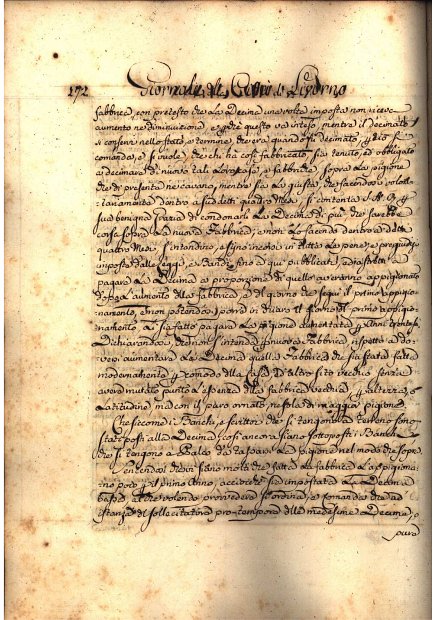 172 Giornale di Livorno
fabbrica, con pretesto che la Decima una volta imposta non riceva
aumento ne diminuzione, e che questo va inteso, mentre il decimato
si conservi nello stato, e termine, che era quando fu decimato, che si
comanda, e si vuole, che chi ha così fabbricato sia tenuto, ed obbligato
a decimare di nuovo tali e fabbriche sopra la pigione
che di presente ne cavano, mentre sia la giusta, che facendosi volon-
tariamente dentro a suddetti quattro Mesi si contenta S.A.
sua benigna Grazia di condonarli la Decima di più che sarebbe
corsa sopra la nuova Fabbrica, e non lo facendo dentro a detti
quattro Mesi s'intendino, e sino incorsi in tutte le pene, e pregiudizi
imposte dalle leggi, e Bandi sino a qui pubblicati, ed astretti a
pagare la Decima a proporzione di quello averanno appigionato
l'aumento della fabbrica, e del giorno che seguì il primo appigio-
namento, e non potendosi porre in chiaro il giorno del primo appigio-
namento, si fatto pagare la pigione aumentata Anni trenta
Dichiarandosi, che non s'intenda nuova Fabbrica rispetto a do-
ver aumentare la Decima quella Fabbrica che sia stata fatta
modernamente comodo della Casa, ed altro sito vecchio senza
avere mutato punto l'essenza della fabbrica vecchia altezza, e
Latitudine ma con il puro ornato, ne sola di maggior pigione
Che siccome i Banchi, e scrittoi che si tengono a terreno sono
stati posti alla Decima, così ancora siano sottoposti i Banchi
che si tengono a Palco che passano la pigione nel modo che sopra
intendosi che vi siano molti che fatta la fabbrica l'appigiona-
no poco il primo Anno, acciocchè sia impostata la Decima
bassa, al che volendo provvedere si ordina, e comanda che ad
istanza di sollecitatore pro tempore delle medesime Decime, o
pure